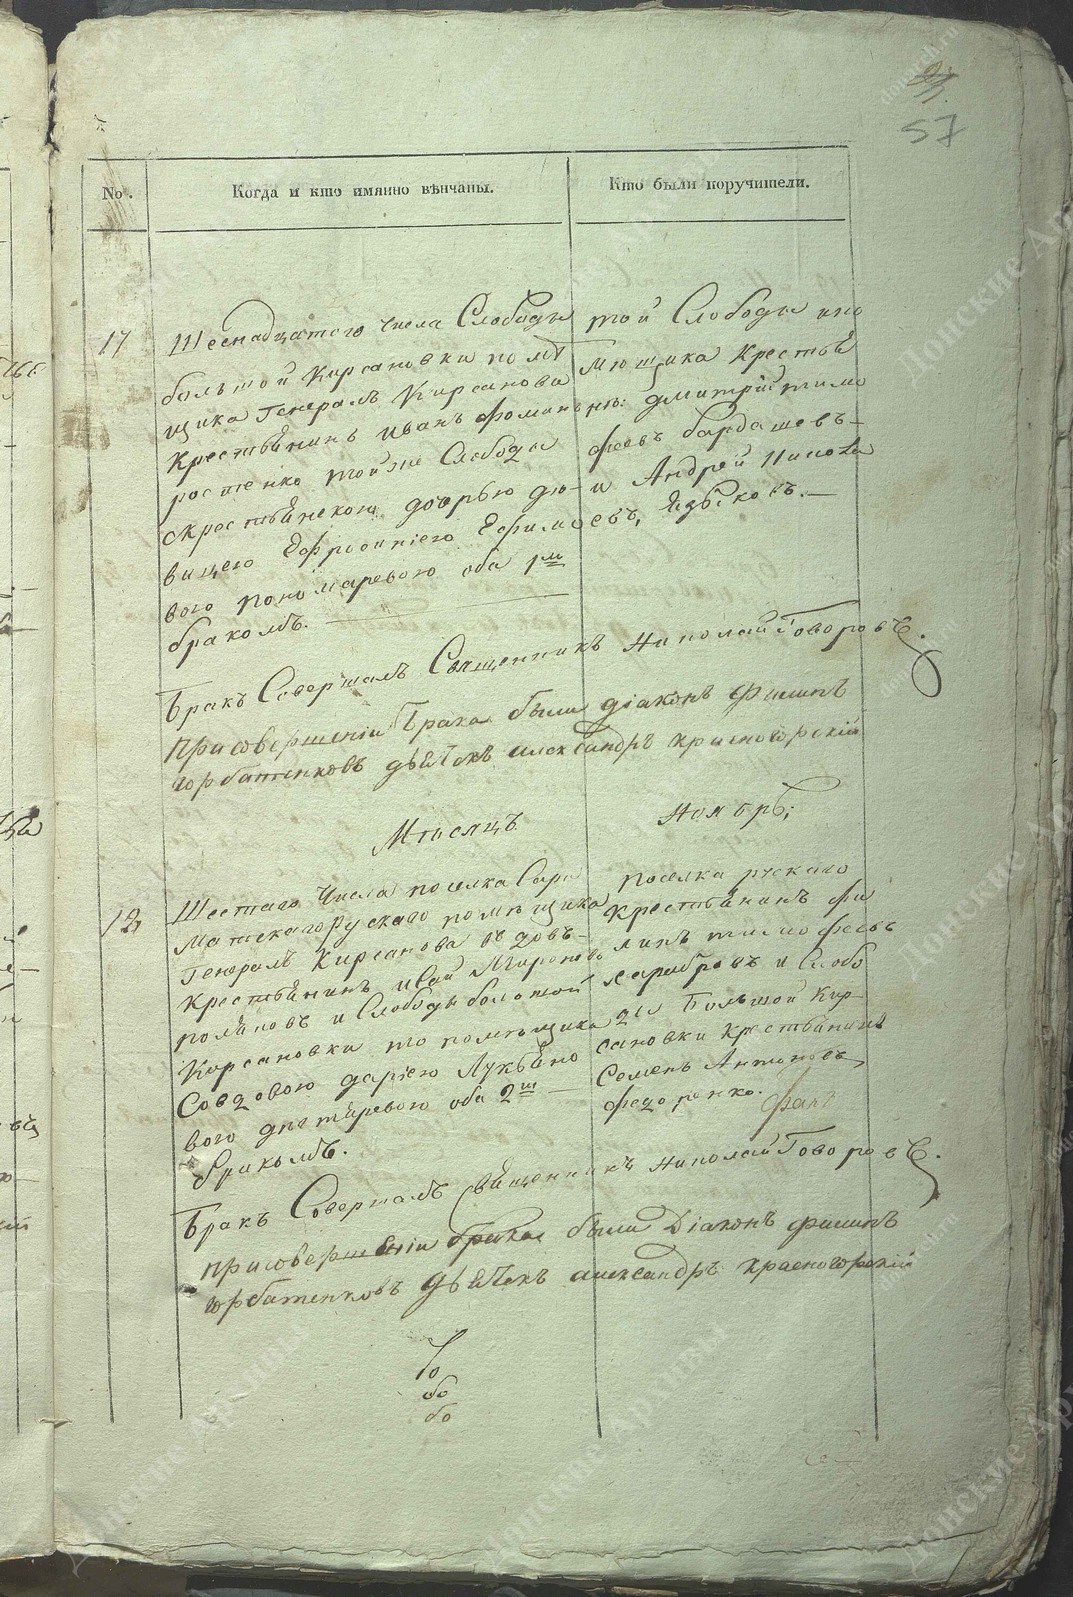 57
No. Когда и кто имянно вѣнчаны. Кто были поручители.
17 Шеснадцатого числа Слободы
болшой Кирсановки помѣ
щика Генералъ Кирсанова
Крестьянинъ иванъ фоминъ
тойже Слободы
скрестьянскою дочерью дѣ-
вицею Ефросиніею Ефимов
вого пономаревою оба 1мъ
бракомъ.
той Слободы ипо
мющика Крестья
не: дмитрій тимо
феевъ бардашевъ
и Андрей
Языковъ.
Бракъ Совершалъ Священникъ Николай Говоровъ.
присовершеніи Брака были діаконъ Филипъ
горбатенковъ дьячокъ александръ красногорскій
Мѣсяцъ Ноябрь;
12 Шестаго Числа поселка Сар
матскагорускаго помѣщика
Генералъ Кирсанова вдовъ-
Крестьянинъ Мироновъ
поляновъ и Слободы болшой
Кирсановки то помѣщика
Совдовою даріею Лукьяно
вого дегтяревою оба 2мъ
бракомъ.
поселка рускаго
Крестьянинъ фи
липъ тимофеевъ
харабровъ и Слобо
ды Большой Кир-
сановки крестьянинъ
Семенъ Антоновъ
федоренко.
Бракъ Совершалъ Священникъ Николай Говоровъ.
присовершеніи брака были Діаконъ филипъ
горбатенковъ дьячокъ александръ красногорскій